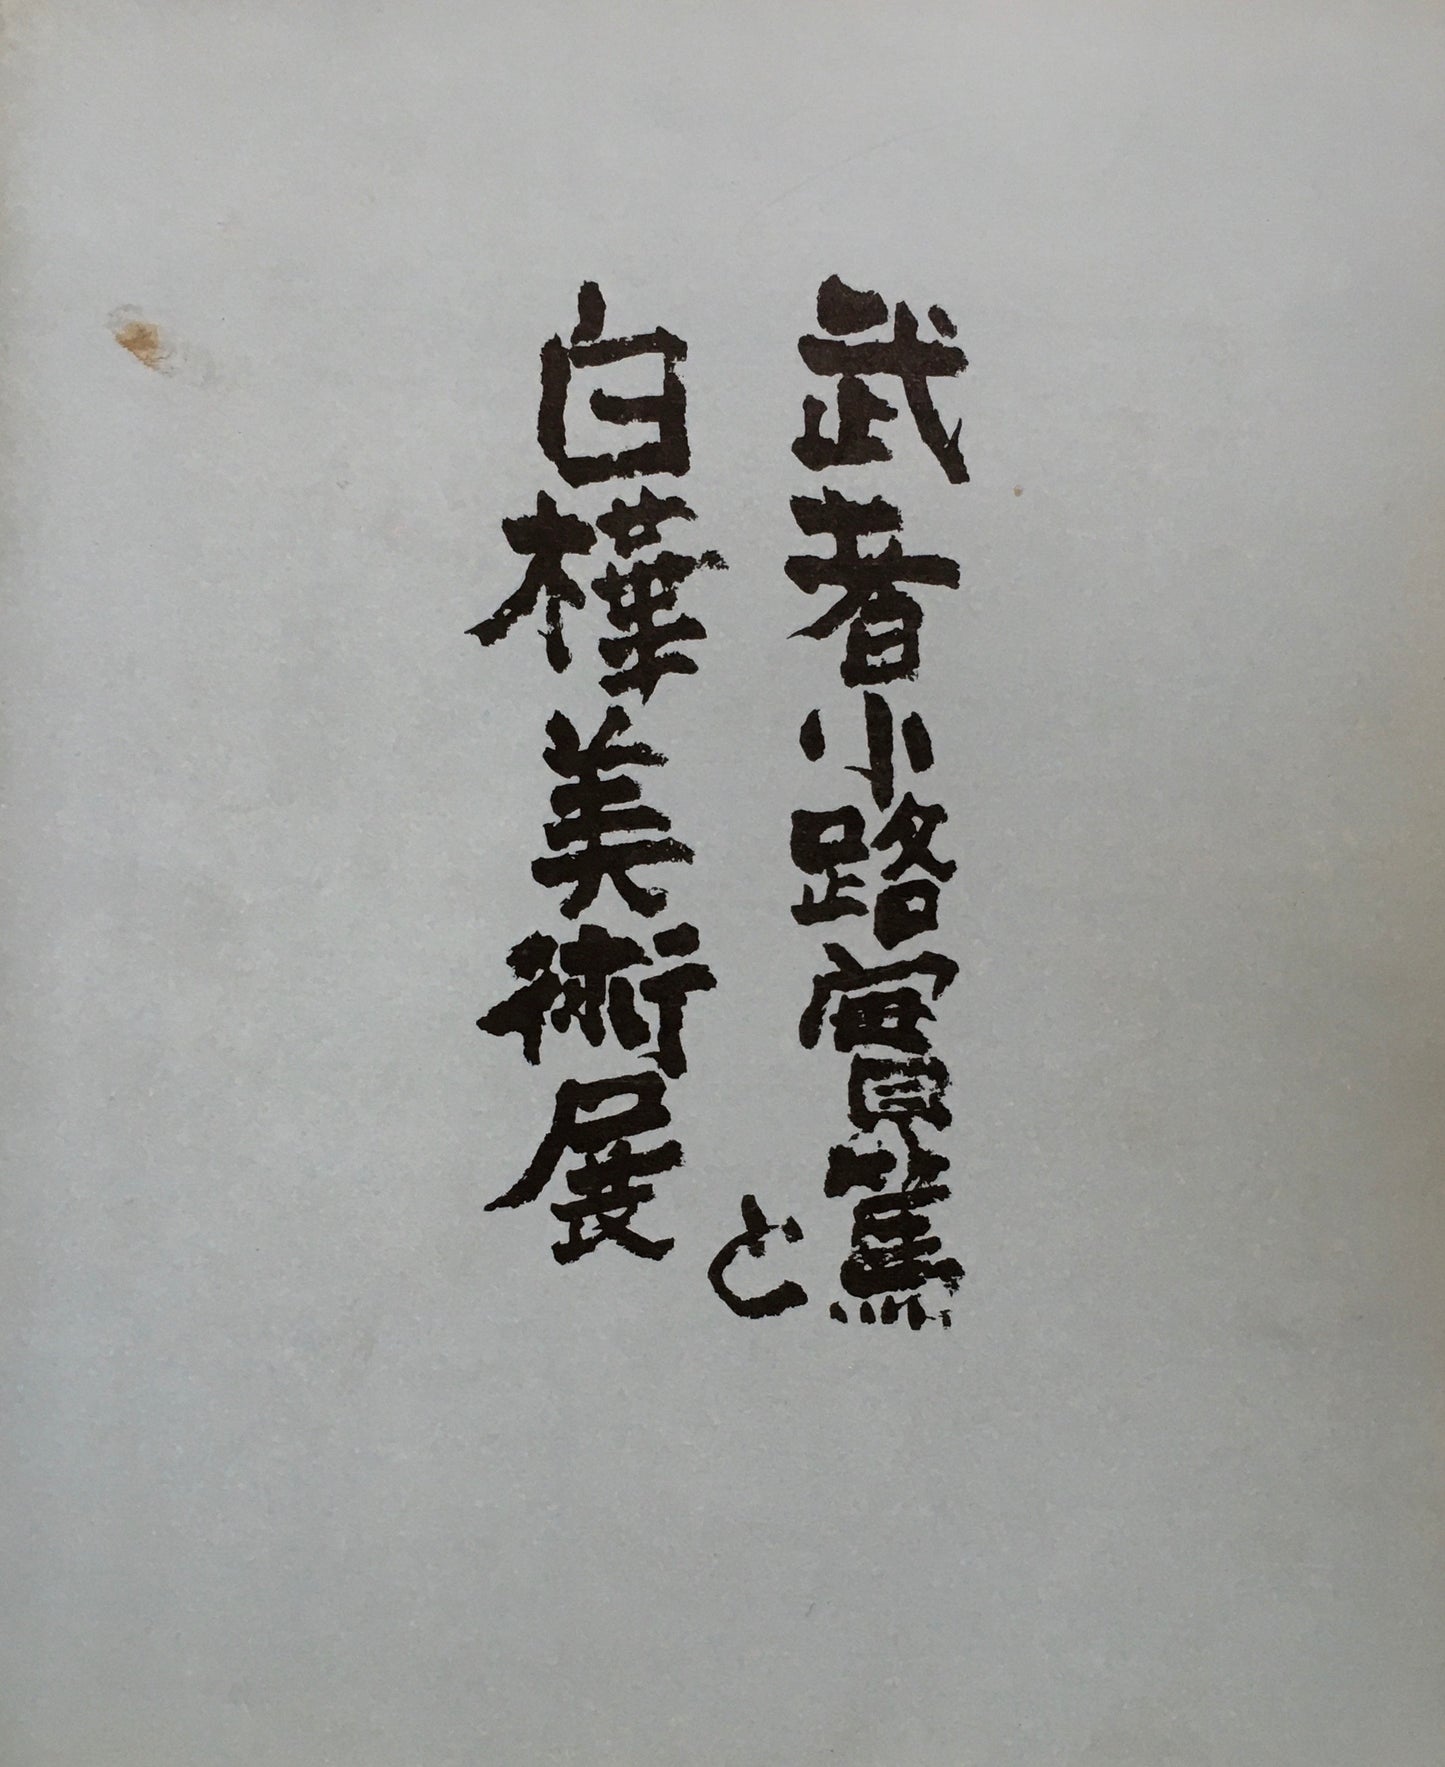 武者小路實篤
と
白樺美術展